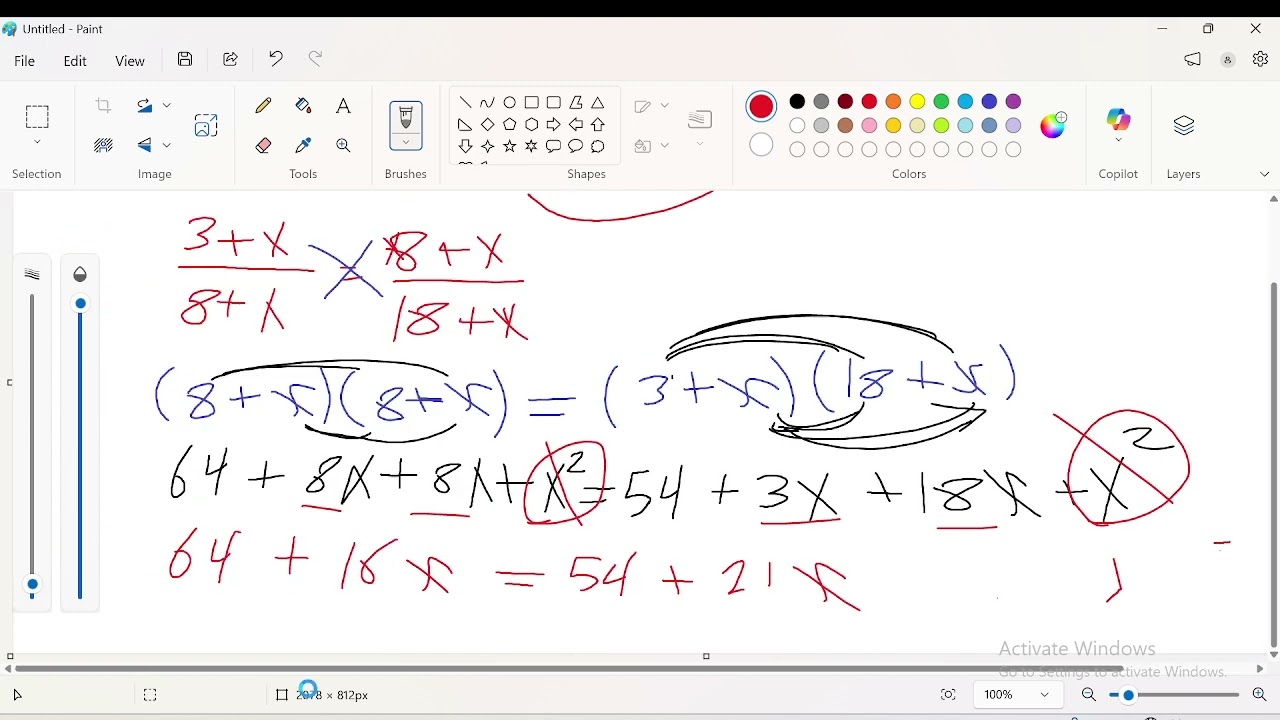 Untitled - Paint
File Edit View
Selection Image Tools Brushes Shapes Colors Copilot Layers
3+x / 8+x = 8+x / 18+x
(8+x)(8+x) = (3+x)(18+x)
64 + 8x + 8x + x² = 54 + 3x + 18x + x²
64 + 16x = 54 + 21x
Activate Windows
Go to Settings to activate Windows.
100%